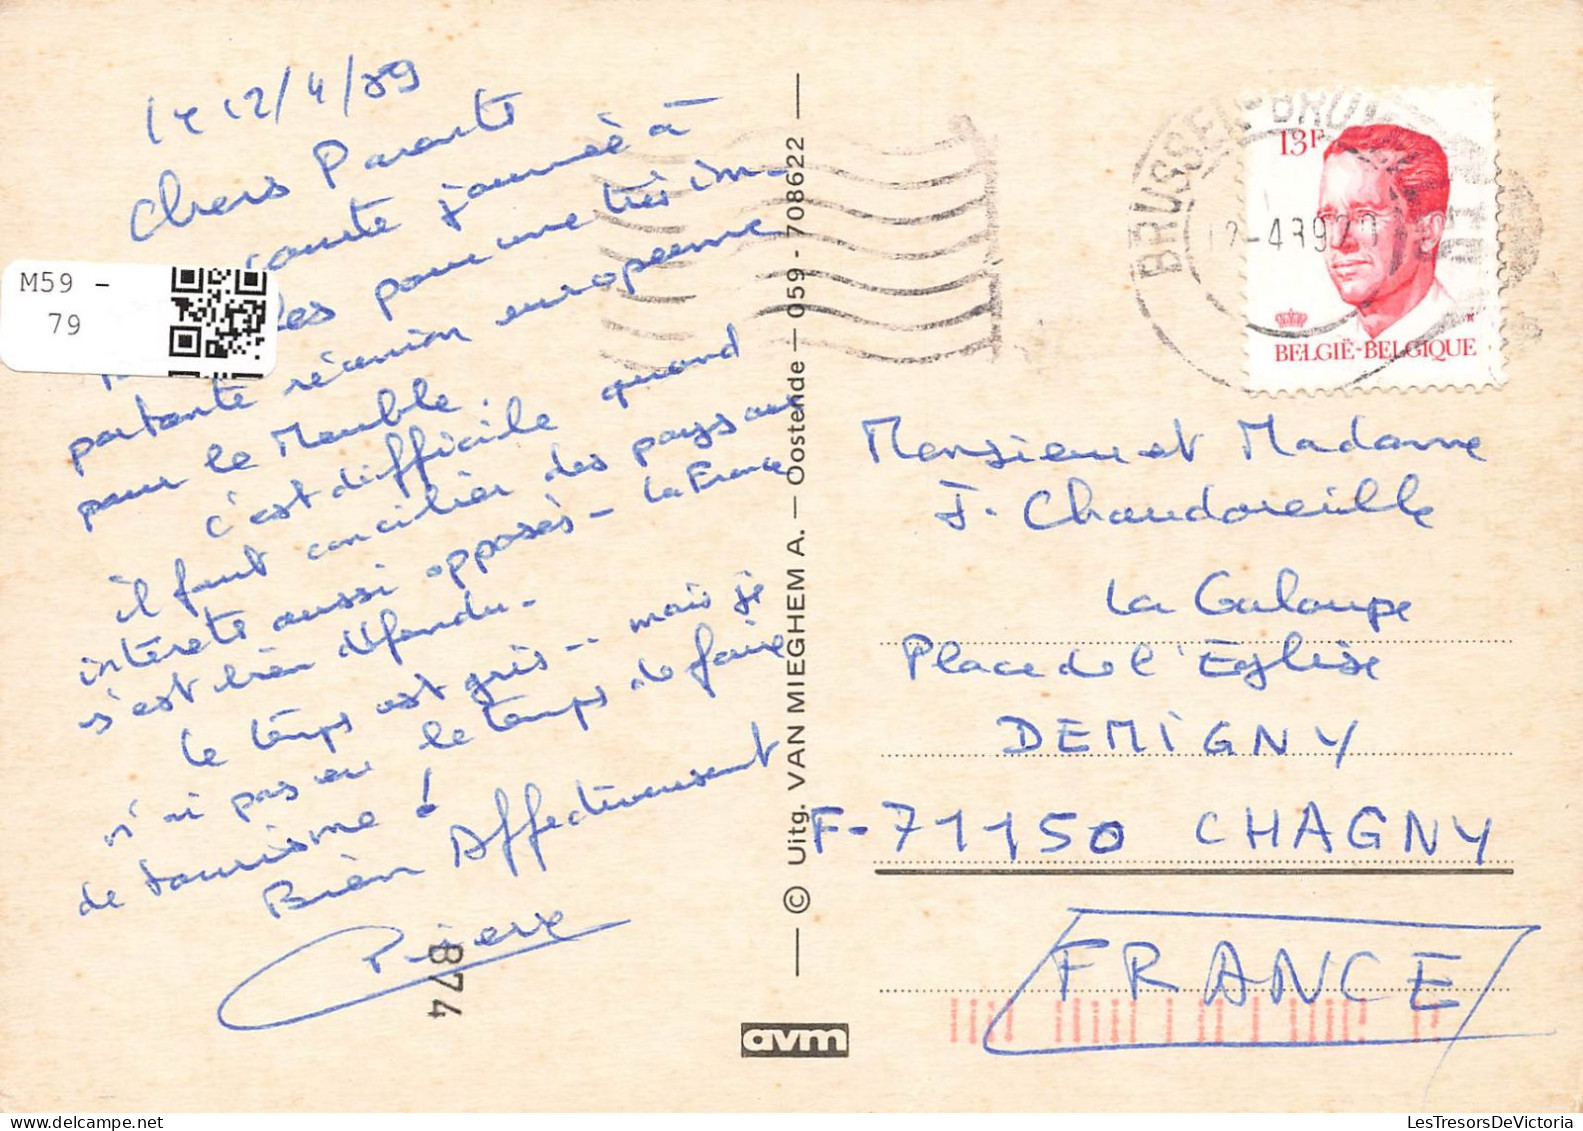 le 12/4/89
Chers Parents
courte journée à
les pour une très im-
portante réunion européenne
pour le Meuble.
c'est difficile quand
il faut concilier des pays aux
intérêts aussi opposés - La France
s'est bien défendu -
Le temps est gris - mais je
n'ai pas eu le temps de faire
de tourisme !
Bien Affectivement
Pierre
M59 -
79
874
© Uitg. VAN MIEGHEM A. — Oostende — 059 - 708622
avm
BRUSSEL
12-4 89 20
13F
BELGIË-BELGIQUE
Monsieur et Madame
J. Chaudoreille
La Galoupe
Place de l'Eglise
DEMIGNY
F-71150 CHAGNY
FRANCE
LesTresorsDeVictoria